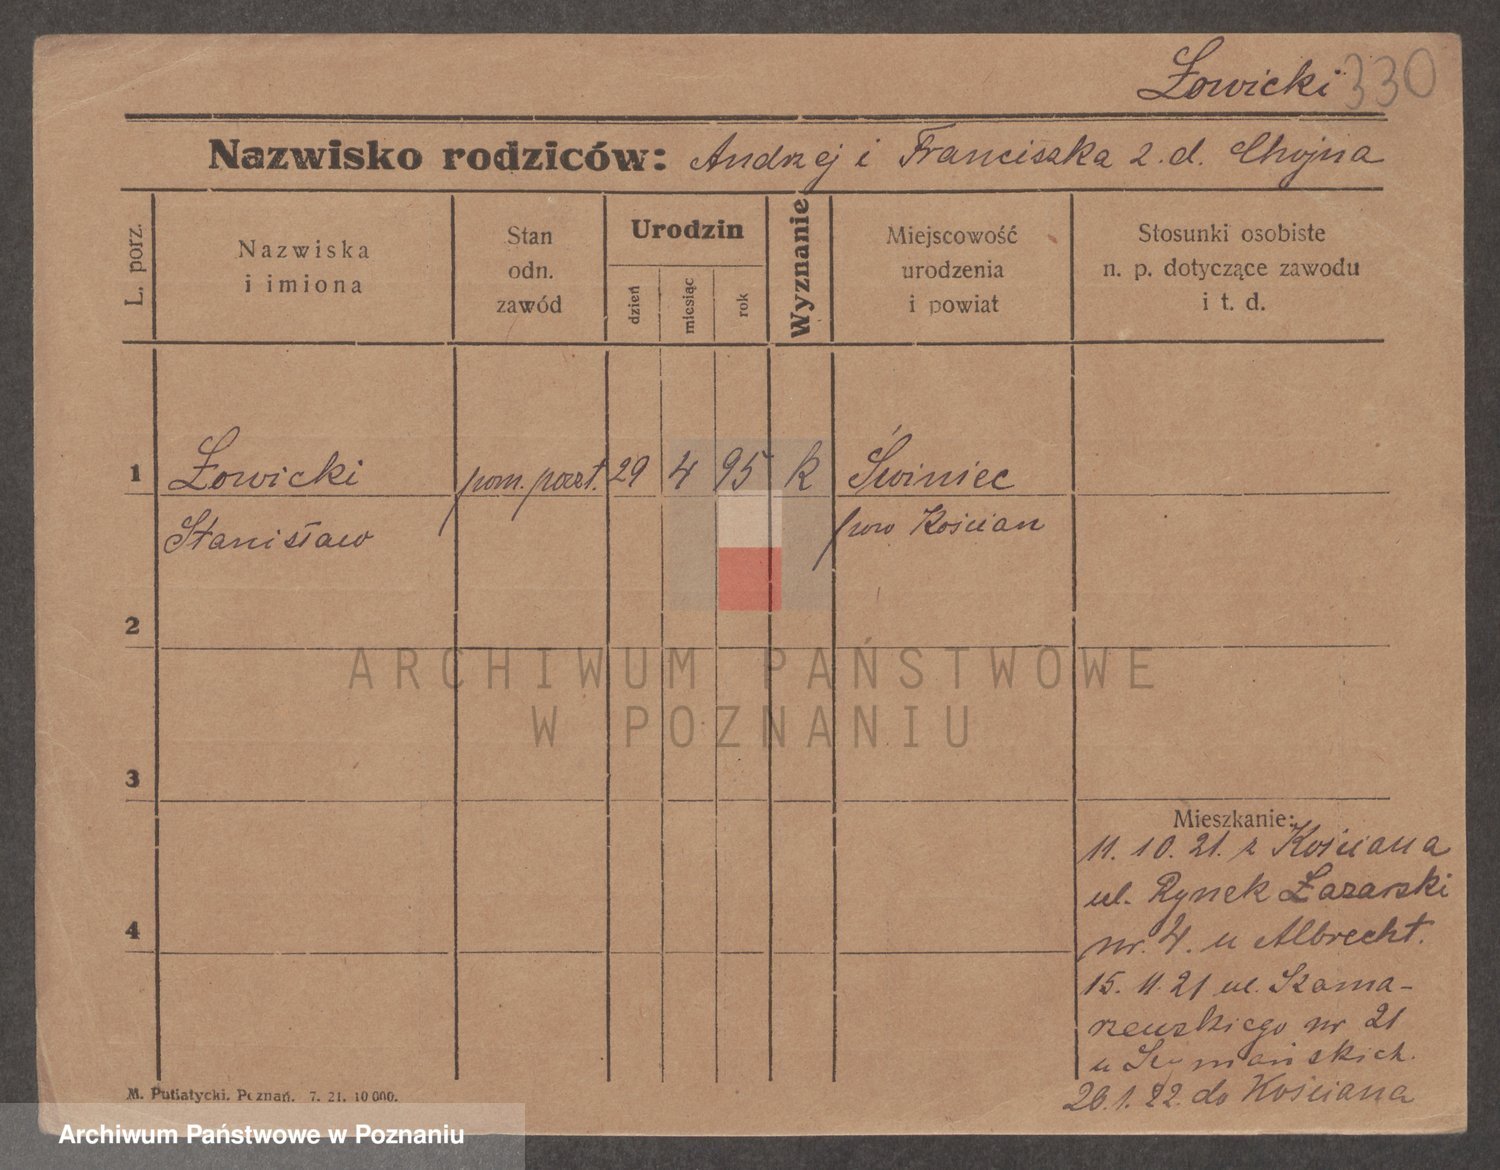 Łowicki 330
Nazwisko rodziców: Andrzej i Franciszka z. d. Chojna
L. porz.
Nazwiska
i imiona
Stan
odn.
zawód
Urodzin
dzień
miesiąc
rok
Wyznanie
Miejscowość
urodzenia
i powiat
Stosunki osobiste
n. p. dotyczące zawodu
i t. d.
1 Łowicki pom. poczt. 29 4 95 k Świniec
Stanisław pow Kościan
2
3
4
Mieszkanie:
11. 10. 21. z Kościana
ul. Rynek Łazarski
nr. 4. u Albrecht.
15. 11. 21 ul. Szama-
rzewskiego nr 21
u Szymańskich.
26. 1. 22. do Kościana
M. Putiatycki. Poznań. 7. 21. 10 000.
ARCHIWUM PAŃSTWOWE
W POZNANIU
Archiwum Państwowe w Poznaniu